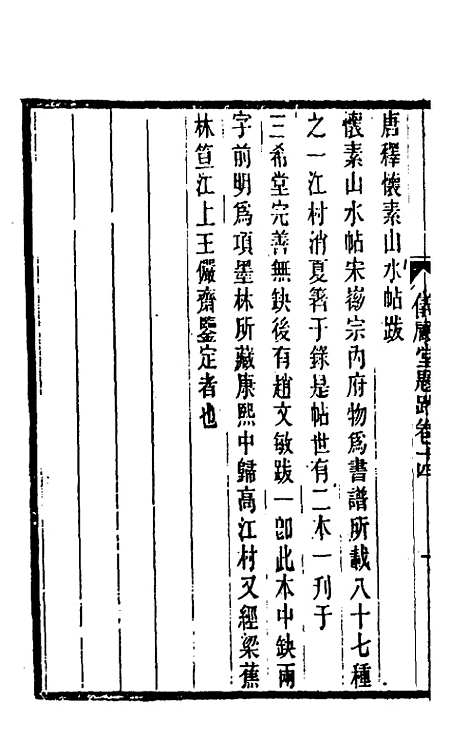 儀顧堂題跋卷十四
唐釋懷素山水帖跋
懷素山水帖宋徽宗內府物爲書譜所載八十七種
之一江村消夏箸于錄是帖世有二本一刊于
三希堂完善無缺後有趙文敏跋一卽此本中缺兩
字前明爲項墨林所藏康熙中歸高江村又經梁蕉
林笪江上王儼齋鑒定者也